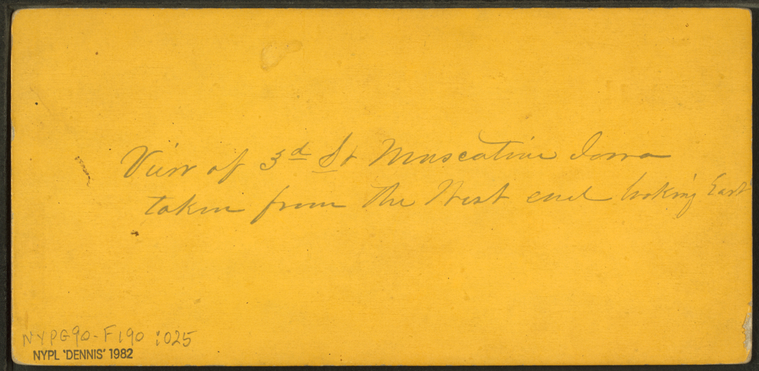 View of 3d St Muscatine Iowa
taken from the West end looking East
NYPG90-F190 :025
NYPL 'DENNIS' 1982